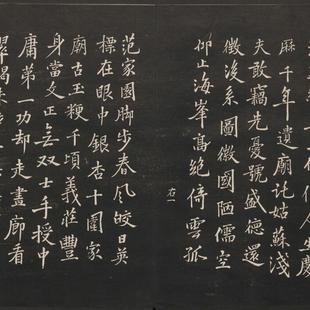 庥千年遺廟託姑蘇淺
夫敢竊先憂號盛德還
徵没系圖徽國陋儒空
仰止海峯髙絶倚雲孤
右一
范家國脚步春風皎日英
標在眼中銀杏十圍家
廟古玉粳千頃義莊豐
身當反正無雙士手授中
庸第一功却走畫廊看